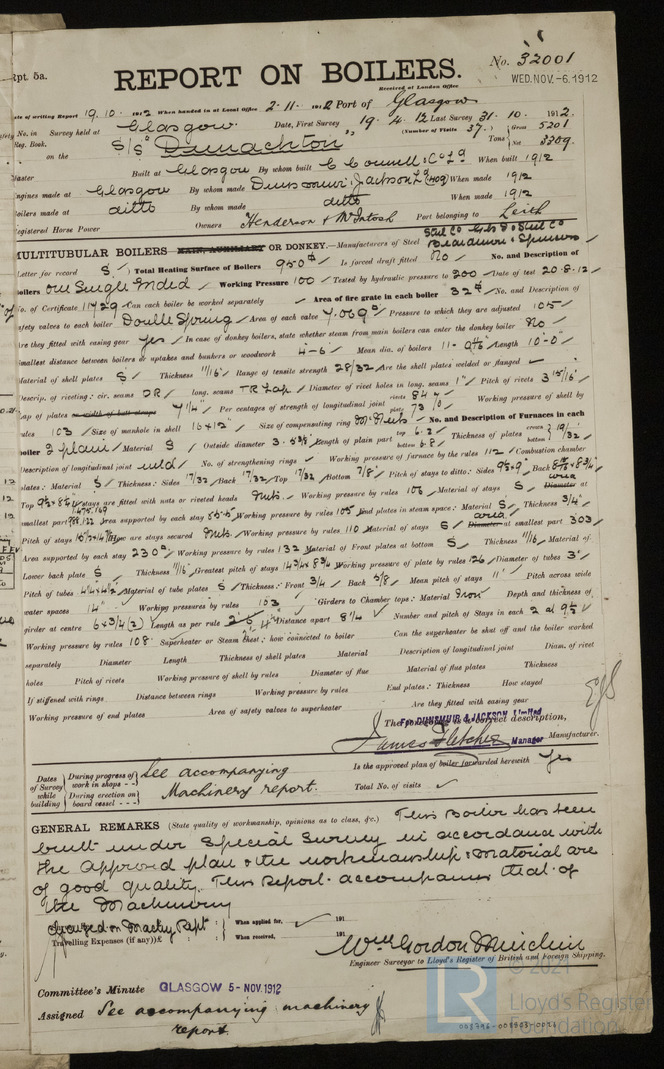 Rpt. 5a.
REPORT ON BOILERS.
No. 32001
Received at London Office WED. NOV. -6. 1912
Date of writing Report 19. 10. 1912 When handed in at Local Office 2. 11. 1912 Port of Glasgow
No. in Survey held at Glasgow Date, First Survey 19. 4. 12 Last Survey 31. 10. 1912
Reg. Book. (Number of Visits 37.) Gross 5201
on the S/S Tons Net 3309
Master Built at Glasgow By whom built C. Connell & Co Ld When built 1912
Engines made at Glasgow By whom made Dunsmuir & Jackson Ld When made 1912
Boilers made at ditto By whom made ditto When made 1912
Registered Horse Power Owners Henderson & McIntosh Port belonging to Leith
MULTITUBULAR BOILERS MAIN, AUXILIARY OR DONKEY.—Manufacturers of Steel Steel Co
Letter for record S. Total Heating Surface of Boilers 950 Is forced draft fitted No No. and Description of
Boilers one Single Ended Working Pressure 100 Tested by hydraulic pressure to 200 Date of test 20.8.12
No. of Certificate 11729 Can each boiler be worked separately Area of fire grate in each boiler 32 No. and Description of
safety valves to each boiler Double Spring Area of each valve 7.069 Pressure to which they are adjusted 105
Are they fitted with easing gear yes In case of donkey boilers, state whether steam from main boilers can enter the donkey boiler No
Smallest distance between boilers or uptakes and bunkers or woodwork 4-6 Mean dia. of boilers Length 10-0
Material of shell plates S Thickness 11/16 Range of tensile strength 28/32 Are the shell plates welded or flanged
Descrip. of riveting: cir. seams DR long. seams TR Lap Diameter of rivet holes in long. seams 1" Pitch of rivets 3 15/16
Lap of plates or width of butt straps 7 1/4 Per centages of strength of longitudinal joint rivets plate Working pressure of shell by
rules 103 Size of manhole in shell 16x12 Size of compensating ring No. and Description of Furnaces in each
boiler 2 plain Material S Outside diameter Length of plain part top bottom Thickness of plates crown bottom
Description of longitudinal joint weld No. of strengthening rings Working pressure of furnace by the rules 112 Combustion chamber
plates: Material S Thickness: Sides 17/32 Back 17/32 Top 17/32 Bottom 7/8 Pitch of stays to ditto: Sides Back
Top If stays are fitted with nuts or riveted heads Nuts. Working pressure by rules Material of stays S Diameter at
smallest part Area supported by each stay Working pressure by rules 105 End plates in steam space: Material S Thickness 3/4
Pitch of stays How are stays secured Nuts. Working pressure by rules 110 Material of stays S Diameter at smallest part 303
Area supported by each stay 230 Working pressure by rules 132 Material of Front plates at bottom S Thickness 11/16 Material of
Lower back plate S Thickness 11/16 Greatest pitch of stays Working pressure of plate by rules 126 Diameter of tubes 3"
Pitch of tubes Material of tube plates S Thickness: Front 3/4 Back 5/8 Mean pitch of stays 11" Pitch across wide
water spaces 14" Working pressures by rules 103 Girders to Chamber tops: Material Iron Depth and thickness of
girder at centre 6x3/4(2) Length as per rule Distance apart 8 1/4 Number and pitch of Stays in each
Working pressure by rules 108. Superheater or Steam chest: how connected to boiler Can the superheater be shut off and the boiler worked
separately Diameter Length Thickness of shell plates Material Description of longitudinal joint Diam. of rivet
holes Pitch of rivets Working pressure of shell by rules Diameter of flue Material of flue plates Thickness
If stiffened with rings Distance between rings Working pressure by rules End plates: Thickness How stayed
Working pressure of end plates Area of safety valves to superheater Are they fitted with easing gear
The foregoing is a correct description,
For DUNSMUIR & JACKSON Limited
James Fletcher Manager Manufacturer.
Dates of Survey while building During progress of work in shops - - During erection on board vessel - - -
See accompanying Machinery report.
Is the approved plan of boiler forwarded herewith Yes
Total No. of visits
GENERAL REMARKS (State quality of workmanship, opinions as to class, &c.) This Boiler has been
built under Special Survey in accordance with
the approved plan & the workmanship & material are
of good quality. This Report accompanies that of
the Machinery
Charged on Machy Rept When applied for, 191
Travelling Expenses (if any) £ When received, 191
Wm Gordon
Engineer Surveyor to Lloyd's Register of British and Foreign Shipping.
Committee's Minute GLASGOW 5-NOV. 1912
Assigned See accompanying machinery
report.
LR
© 2021
Lloyd's Register
Foundation